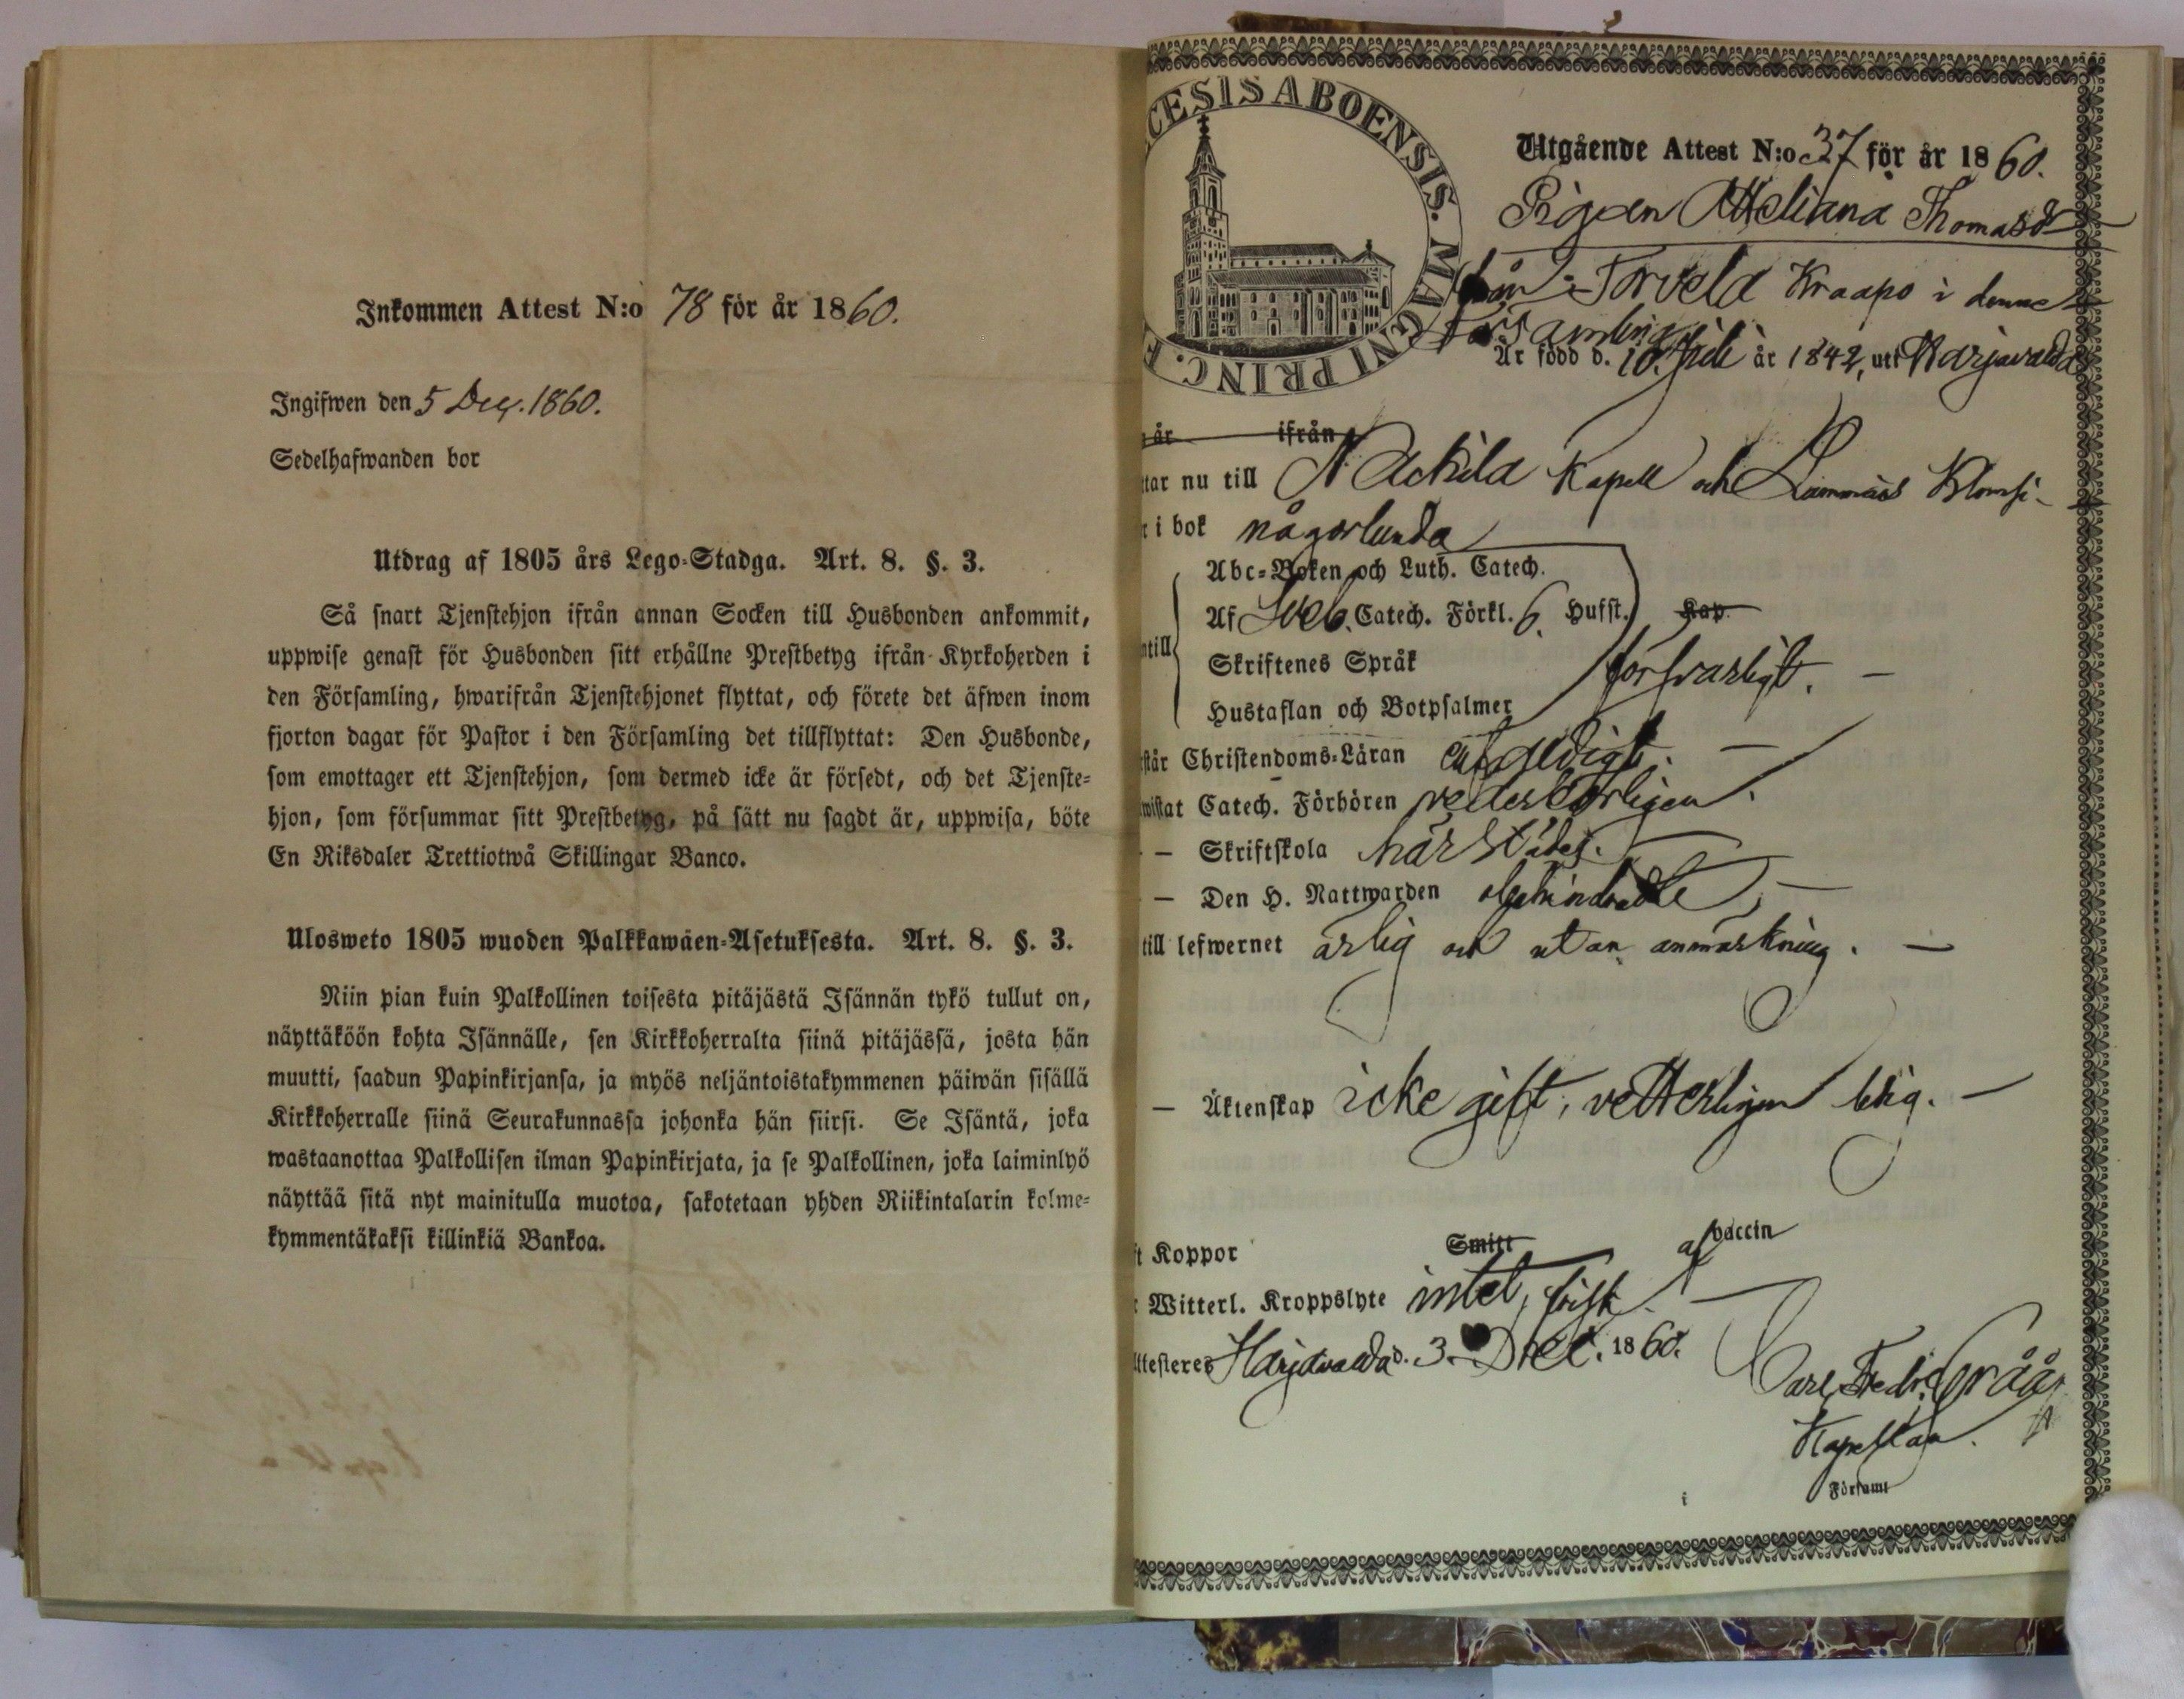 Inkommen Attest N:o 78 för år 1860.
Ingifwen den 5 Dec. 1860.
Sedelhafwanden bor
Utdrag af 1805 års Lego-Stadga. Art. 8. §. 3.
Så snart Tjenstehjon ifrån annan Socken till Husbonden ankommit,
uppwise genast för Husbonden sitt erhållne Prestbetyg ifrån Kyrkoherden i
den Församling, hwarifrån Tjenstehjonet flyttat, och förete det äfwen inom
fjorton dagar för Pastor i den Församling det tillflyttat: Den Husbonde,
som emottager ett Tjenstehjon, som dermed icke är försedt, och det Tjenste-
hjon, som försummar sitt Prestbetyg, på sätt nu sagdt är, uppwisa, böte
En Riksdaler Trettiotwå Skillingar Banco.
Ulosweto 1805 wuoden Palkkawäen-Asetuksesta. Art. 8. §. 3.
Niin pian kuin Palkollinen toisesta pitäjästä Isännän tykö tullut on,
näyttäköön kohta Isännälle, sen Kirkkoherralta siinä pitäjässä, josta hän
muutti, saadun Papinkirjansa, ja myös neljäntoistakymmenen päiwän sisällä
Kirkkoherralle siinä Seurakunnassa johonka hän siirsi. Se Isäntä, joka
wastaanottaa Palkollisen ilman Papinkirjata, ja se Palkollinen, joka laiminlyö
näyttää sitä nyt mainitulla muotoa, sakotetaan yhden Riikintalarin kolme-
kymmentäkaksi killinkiä Bankoa.
CESIS ABOENSIS. MAGNI PRINC. F
Utgående Attest N:o 37 för år 1860.
Pigan Thomasdr
från Torvela Kraapo i denna
Församling
Är född d. 10 år 1842, uti Harjavalda
år ifrån
tar nu till Nackila Kapell och
r i bok någorlunda
Abc-Boken och Luth. Catech.
Af Sveb. Catech. Förkl. 6 Husst. Kap.
till Skriftenes Språk försvarligt.
Hustaflan och Botpsalmer
står Christendoms-Läran enfaldigt.
wistat Catech. Förhören vederbörligen.
— Skriftskola härstädes.
— Den H. Nattwarden obehindrade
till lefwernet ärlig och utan anmärkning.
— Äktenskap icke gift, vetterligen ledig.
t Koppor Smitt af vaccin
Witterl. Kroppslyte intet, frisk.
ttesteres Harjavalda d. 3 Dec. 1860.
Carl Fredr. Gråå
Kapellan.
i Församl